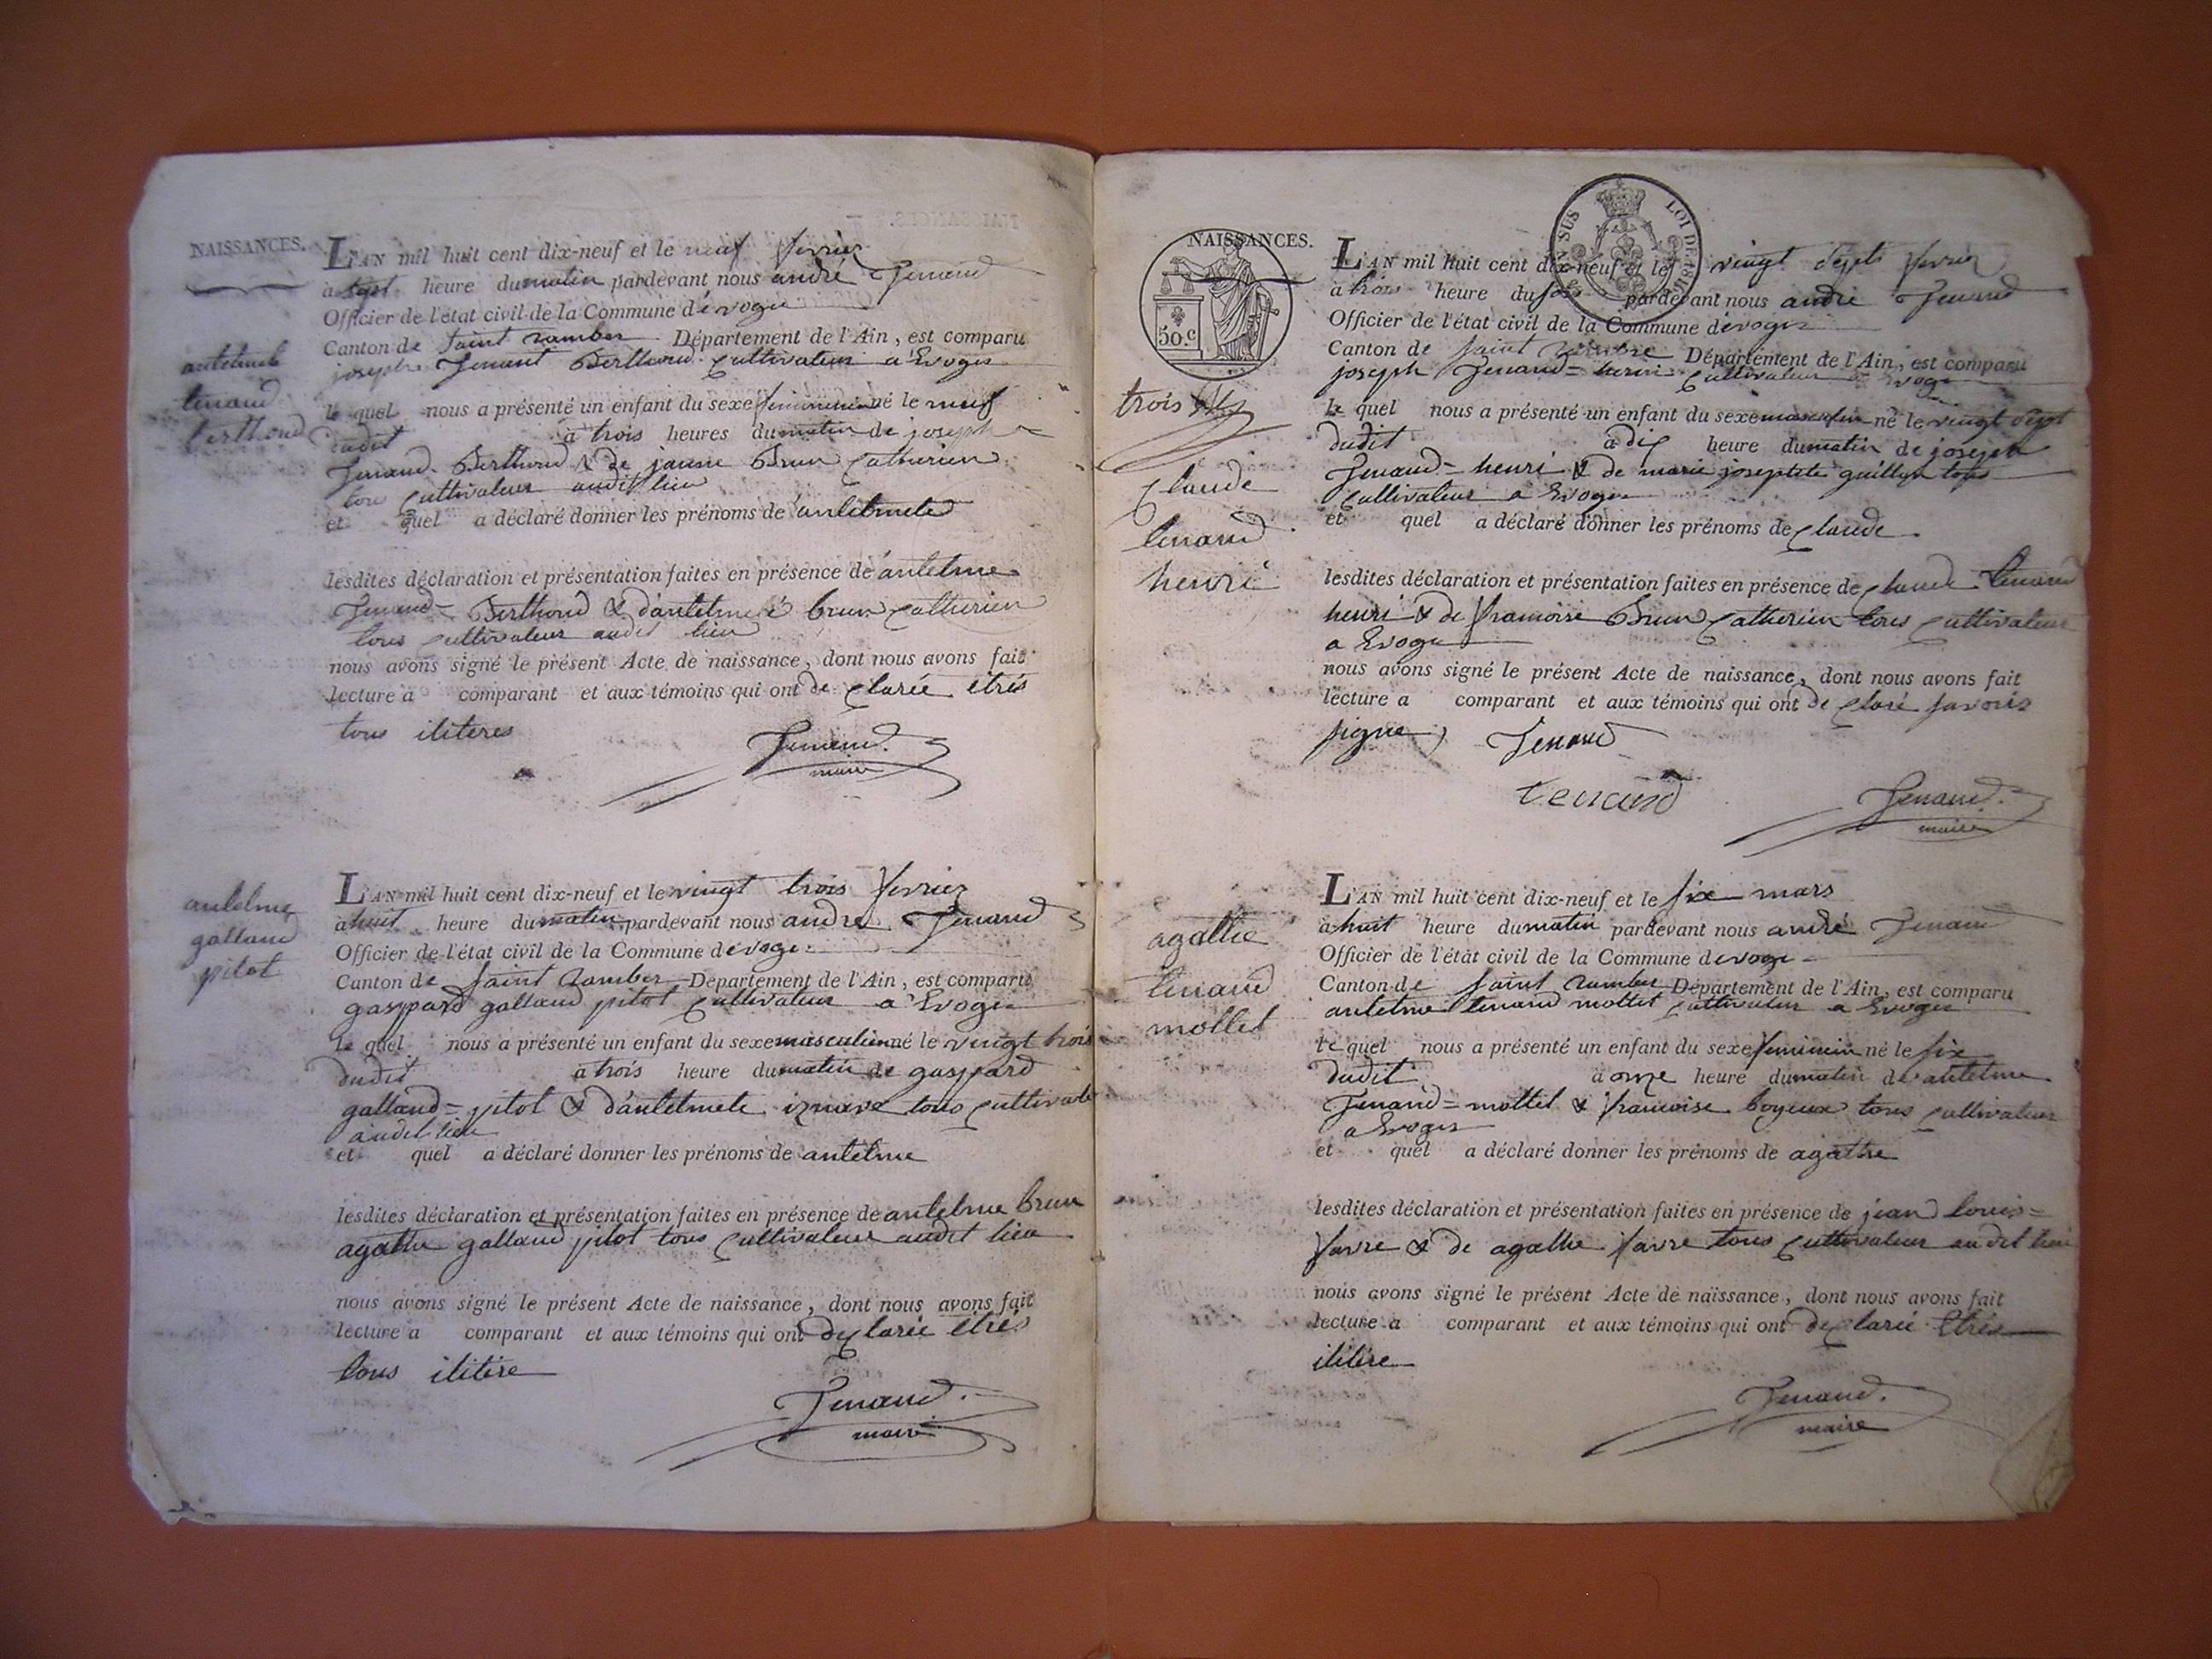 NAISSANCES.
L'AN mil huit cent dix-neuf et le neuf fevrier
a sept heure du matin pardevant nous andré Tenand
Officier de l'état civil de la Commune d'évoge
Canton de Saint ramber Département de l'Ain, est comparu
joseph Tenant Berthond cultivateur a Evoges
le quel nous a présenté un enfant du sexe feminin né le neuf
dudit à trois heures du matin de joseph
Tenand Berthond & de jeanne Brun Catherien
tous cultivateur audit lieu
et quel a déclaré donner les prénoms de antelmete
lesdites déclaration et présentation faites en présence de antelme
Tenand = Berthond & d'antelme brun catherien
tous cultivateur audit lieu
nous avons signé le présent Acte de naissance, dont nous avons fait
lecture a comparant et aux témoins qui ont de clarée etrés
tous iliteres
Tenand.
maire
antelmete
tenand
berthond
L'AN mil huit cent dix-neuf et le vingt trois fevrier
a huit heure du matin pardevant nous andre Tenand
Officier de l'état civil de la Commune d'evoge
Canton de Saint Ramber Département de l'Ain, est comparu
gaspard galland pitot cultivateur a Evoges
le quel nous a présenté un enfant du sexe masculien né le vingt trois
dudit a trois heure du matin de gaspard
galland = pitot & d'antelmete tous cultivateur
audit lieu
et quel a déclaré donner les prénoms de antelme
lesdites déclaration et présentation faites en présence de antelme brun
agathe galland pitot tous cultivateur audit lieu
nous avons signé le présent Acte de naissance, dont nous avons fait
lecture a comparant et aux témoins qui ont de clarée etrés
tous ilitire
Tenand.
maire
antelme
galland
pitot
NAISSANCES.
50.c
SUS
LOI DE 1816
L'AN mil huit cent dix-neuf et le vingt sept fevrier
a trois heure du soir pardevant nous andré Tenand
Officier de l'état civil de la Commune d'évoges
Canton de Saint Département de l'Ain, est comparu
joseph Tenand = henri cultivateur a Evoge
le quel nous a présenté un enfant du sexe masculien né le vingt sept
dudit a dix heure du matin de joseph
Tenand = henri & de marie josephte guillon tous
cultivateur a Evoges
et quel a déclaré donner les prénoms de claude
lesdites déclaration et présentation faites en présence de claude tenand
henri & de francoise Brun Catherien tous cultivateur
a Evoge
nous avons signé le présent Acte de naissance, dont nous avons fait
lecture a comparant et aux témoins qui ont de claré savoirs
signe Tenand
tenand
Tenand.
maire
trois
Claude
tenand
henri
L'AN mil huit cent dix-neuf et le six mars
a huit heure du matin pardevant nous andré Tenand
Officier de l'état civil de la Commune d evoge
Canton de Saint ramber Département de l'Ain, est comparu
antelme tenand mollet cultivateur a Evoges
le quel nous a présenté un enfant du sexe feminin né le six
dudit a onze heure du matin de antelme
Tenand = mollet & francoise boyeux tous cultivateur
a Evoges
et quel a déclaré donner les prénoms de agathe
lesdites déclaration et présentation faites en présence de jean louis =
favre & de agathe favre tous cultivateur au dit lieu
nous avons signé le présent Acte de naissance, dont nous avons fait
lecture a comparant et aux témoins qui ont de clarée etrés
ilitire
Tenand.
maire
agathe
tenand
mollet